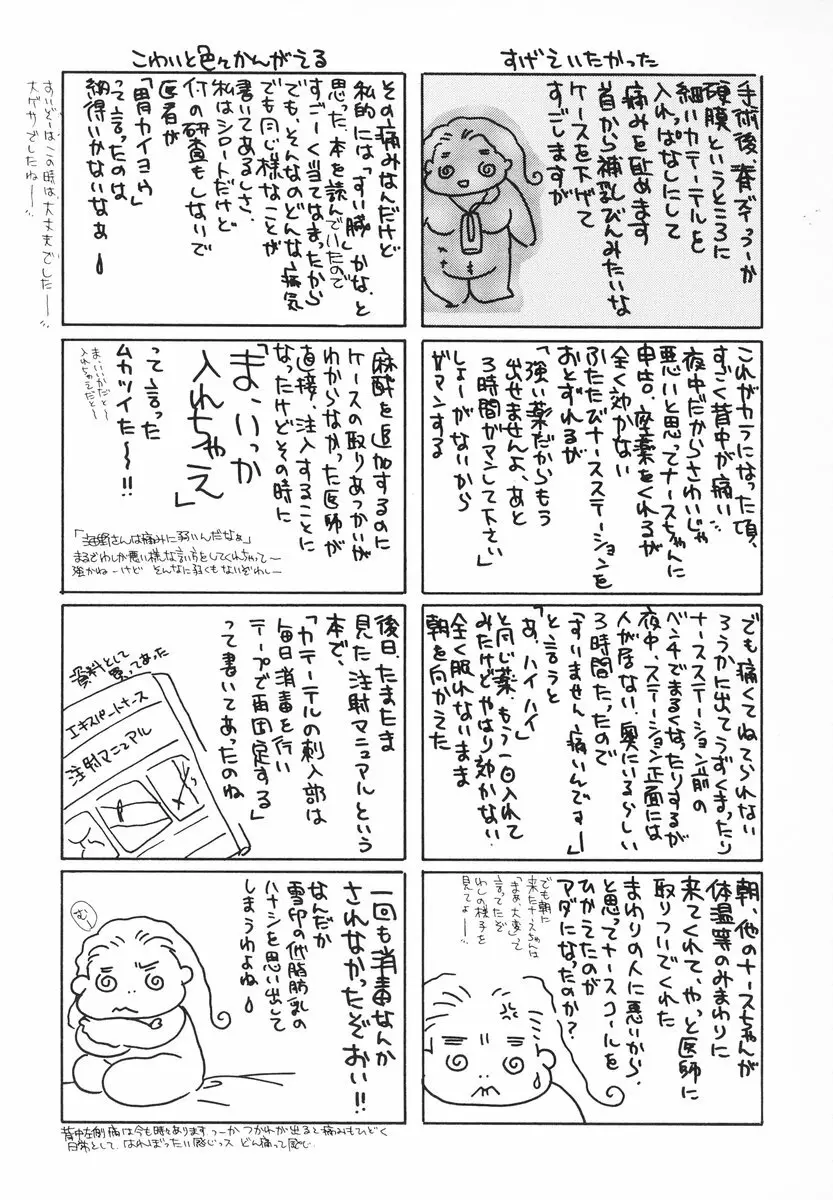 すげえいたかった
手術後、脊ずいっつーか
硬膜というところに
細いカテーテルを
入れっぱなしにして
痛みを止めます
首から補乳びんみたいな
ケースを下げて
すごしますが
これがカラになった頃、
すごく背中が痛い
夜中だからさわいじゃ
悪いと思ってナースちゃんに
申告。座薬をくれるが
全く効かない
ふたたびナースステーションを
おとずれるが
「強い薬だからもう
出せませんよ、あと
3時間ガマンして下さい」
しょーがないから
ガマンする
でも痛くてねてられない
ろうかに出てうずくまったり
ナースステーション前の
ベンチでまるくなったりするが
夜中、ステーション正面には
人が居ない、奥にいるらしい
3時間たったので
「すいません、痛いんです」
と言うと
「あ、ハイハイ」
と同じ薬、もう一回入れて
みたけどやはり効かない。
全く眠れないまま
朝を向かえた
朝、他のナースちゃんが
体温等のみまわりに
来てくれて、やっと医師に
取りついでくれた
まわりの人に悪いから、
と思ってナースコールを
ひかえたのが
アダになったのか?
でも朝に
来たナースちゃんは
「まぁ、大変」って
言ってたぞ
わしの様子を
見てよ―
こわいと色々かんがえる
その痛みなんだけど
私的には「すい臓」かな、と
思った。本を読んでいたので
すごーく当てはまったから
でも、そんなのどんな病気
でも同じ様なことが
書いてあるしさ、
私はシロートだけど
何の研査もしないで
医者が
「胃カイヨウ」
って言ったのは
納得いかないなぁ
すいぞーはこの時は、大丈夫でした―
大ゲサでしたね―
麻酔を追加するのに
ケースの取りあつかいが
わからなかった医師が
直接、注入することに
なったけどその時に
「ま、いっか
入れちゃえ」
って言った
ムカツイた～!!
ま、いいかだと～
入れちゃえだと～
「海野さんは痛みに弱いんだなぁ」
まるでわしが悪い様な言い方をしてくれちゃって―
強かねーけど そんなに弱くもないぞわし―
後日、たまたま
見た注射マニュアルという
本で、
「カテーテルの刺入部は
毎日消毒を行い
テープで再固定する」
って書いてあったのね
資料として
買ってあった
エキスパートナース
注射マニュアル
一回も消毒なんか
されなかったぞおい!!
なんだか
雪印の低脂肪乳の
ハナシを思い出して
しまうわよね
むー
背中左側痛は今も時々あります。つーか つかれが出ると痛みもひどく
日常として、はればったい感じっス どん痛って感じ